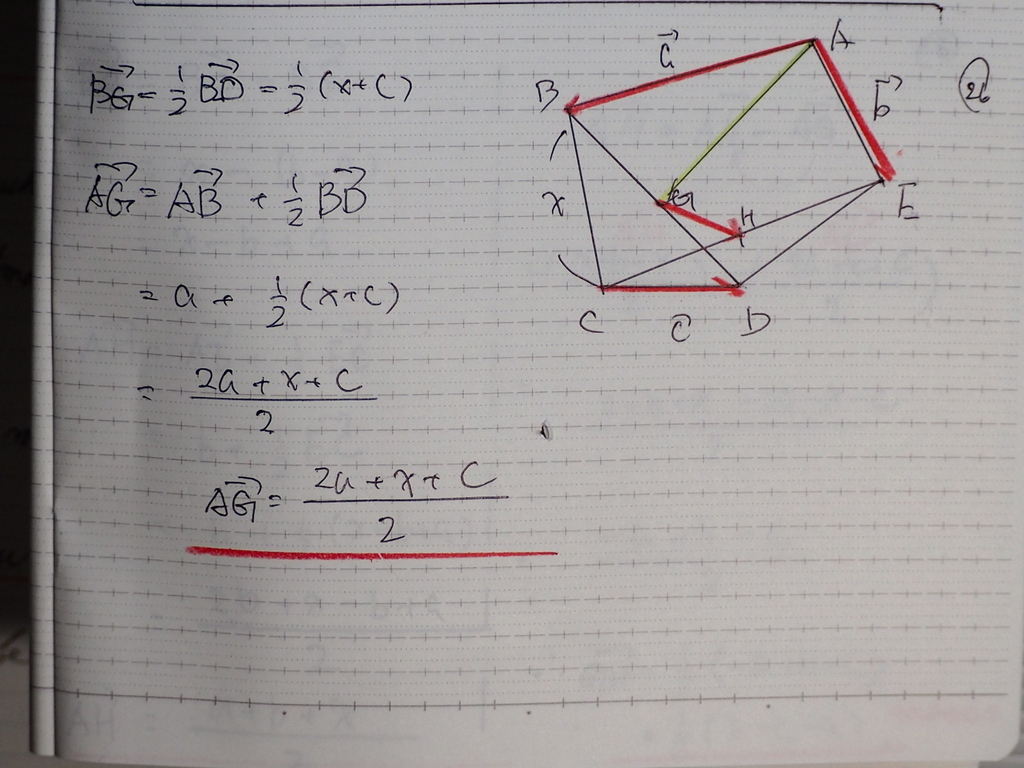 BG = 1/2 BD = 1/2 (x+c)
AG = AB + 1/2 BD
= a + 1/2 (x+c)
= 2a + x + c / 2
AG = 2a + x + c / 2
A
a
B
b
26
G
H
E
x
C
c
D